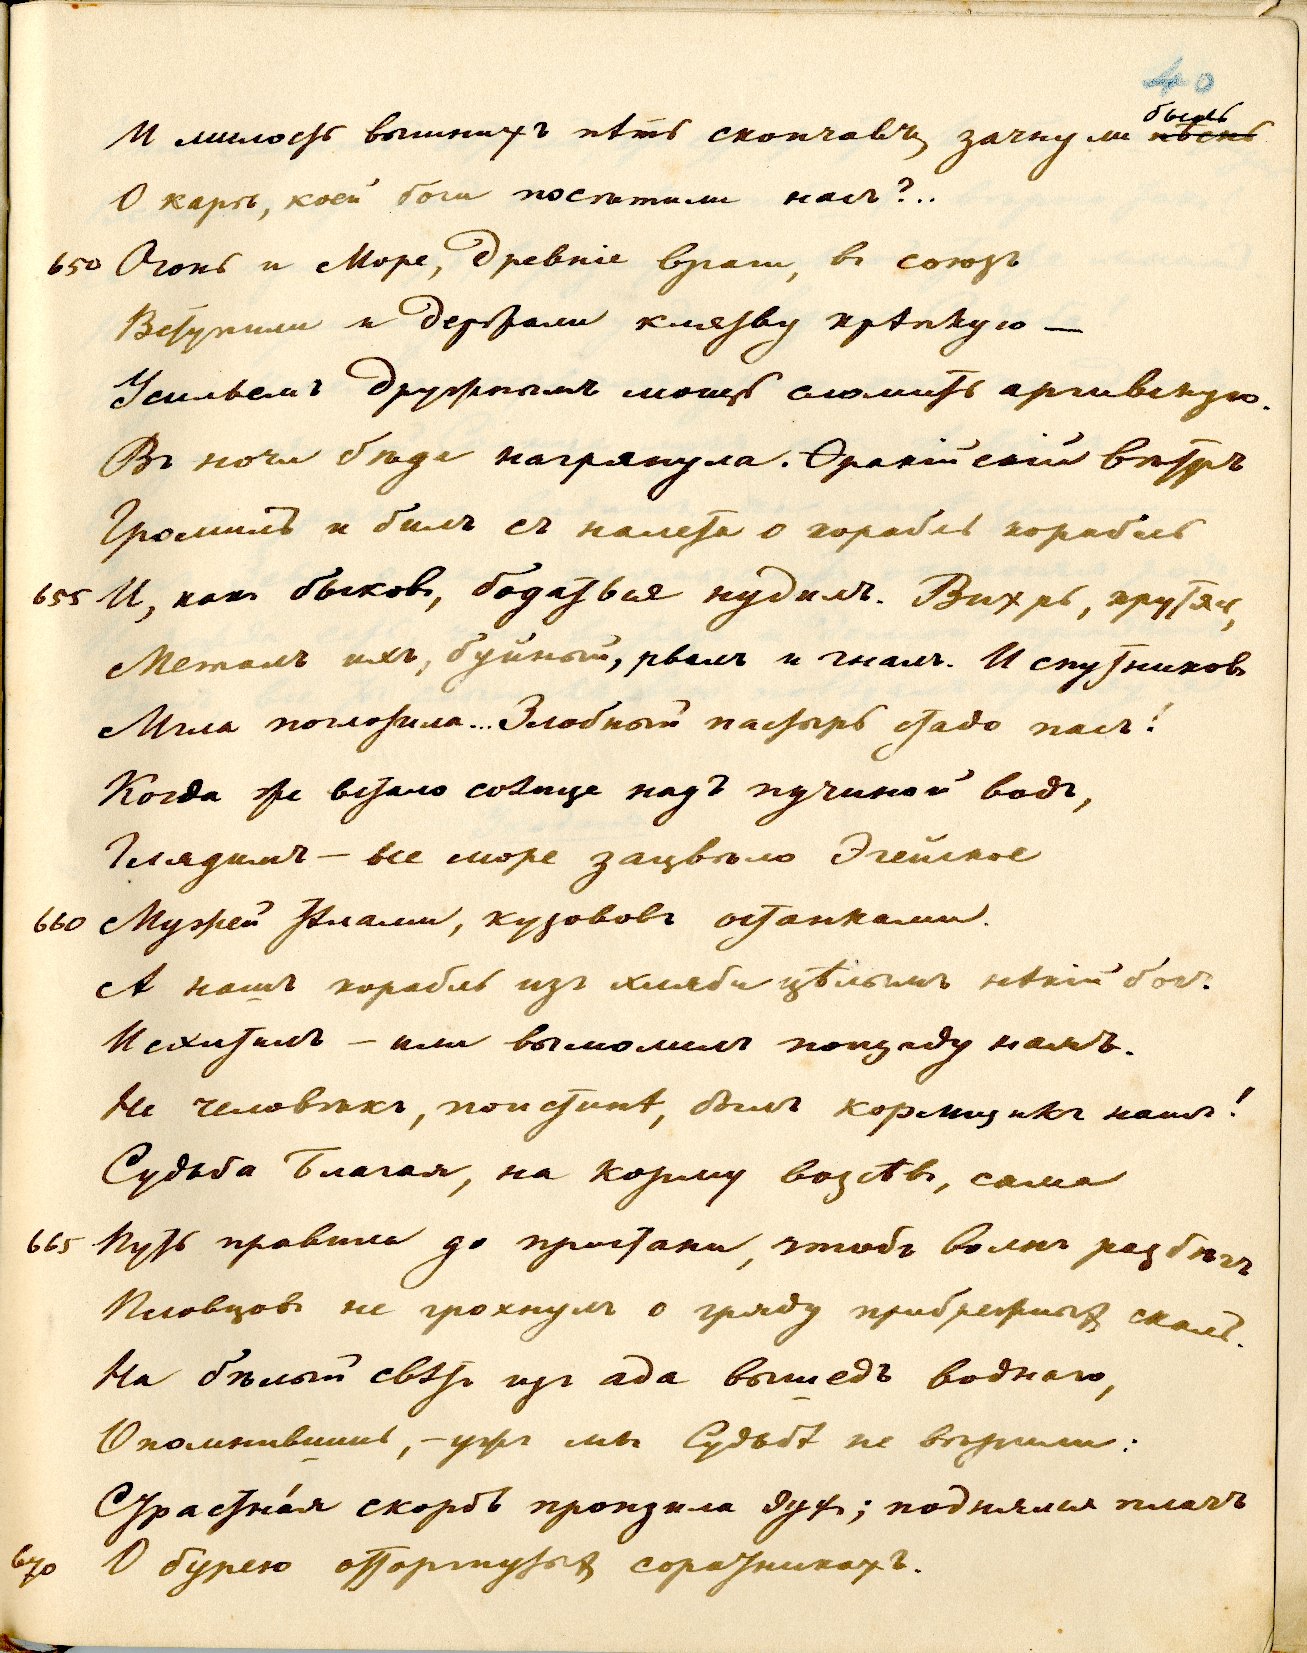 40
быль
И милость вышнихъ пѣть скончавъ, зачну ли пѣснь
О карѣ, коей боги посѣтили насъ?..
650 Огонь и Море, древніе враги, въ союзъ
Вступили и держали клятву крѣпкую —
Усильемъ дружнымъ мощь сломить аргивскую.
Въ ночи бѣда нагрянула. Ѳракійскій вѣтръ
Громилъ и билъ съ налета о корабль корабль
655 И, какъ быковъ, бодаться нудилъ. Вихрь, крутясь,
Металъ ихъ, буйный, рвалъ и гналъ. И спутниковъ
Мгла поглотила... Злобный пастырь стадо пасъ!
Когда же встало солнце надъ пучиной водъ,
Глядимъ — все море зацвѣло Эгейское
660 Мужей тѣлами, кузововъ останками.
А нашъ корабль изъ хляби цѣлымъ нѣкій богъ
Исхитилъ — или вымолилъ пощаду намъ.
Не человѣкъ, поистинѣ, былъ кормщикъ нашъ!
Судьба Благая, на корму возсѣвъ, сама
665 Путь правила до пристани, чтобъ волнъ разбѣгъ
Пловцовъ не грохнулъ о гряду прибрежныхъ скалъ.
На бѣлый свѣтъ изъ ада вышедъ воднаго,
Опомнившись, — ужъ мы Судьбѣ не вѣрили:
Страстна́я скорбь пронзила духъ; поднялся плачъ
670 О бурею отторгнутыхъ соратникахъ.